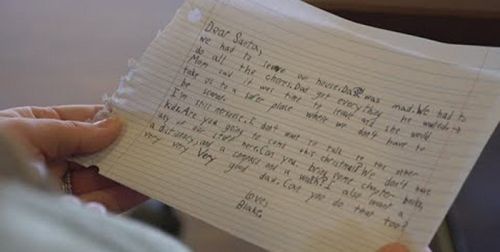 Dear Santa,
we had to leave our house. Dad was mad. We had to
do all the chores. Dad got everything he wanted.
Mom said it was time to leave and she would
take us to a safer place where we don't have to
be scared.
I'm still nervous. I don't want to talk to the other
kids. Are you going to come this christmas? We don't have
any of our stuff here. Can you bring some chapter books,
a dictionary, and a compass and a watch? I also want a
very very very good dad. Can you do that too?
Love,
Blake